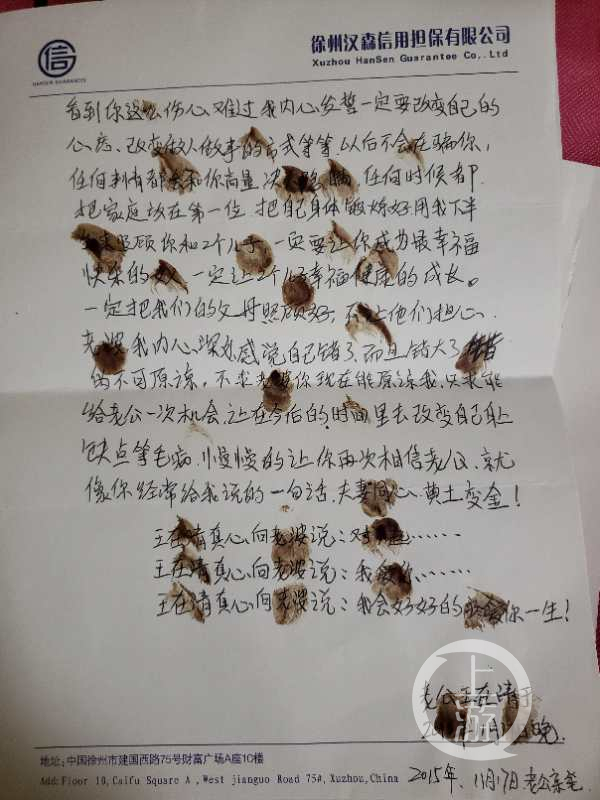 信
HANSEN GUARANTEE
徐州汉森信用担保有限公司
Xuzhou HanSen Guarantee Co,.Ltd
看到你这么伤心难过我内心发誓一定要改变自己的
心态、改变做人做事的方式等等.以后不会在骗你,
任何事情都会和你商量 决不隐瞒 任何时候都
把家庭放在第一位 把自己身体锻炼好用我下半
照顾你和2个儿子 一定要让你成为最幸福
快乐的女人 一定让2个儿子幸福健康的成长。
一定把我们的父母照顾好,不让他们担心.
老婆我内心深处感觉自己错了 而且错大了
的不可原谅, 不求老婆你现在能原谅我,只求能
给老公一次机会,让在今后的时间里去改变自己身上
缺点等毛病,慢慢的让你再次相信老公、就
像你经常给我说的一句话、夫妻同心、黄土变金!
王在清真心向老婆说:对不起……
王在清真心向老婆说:我爱你……
王在清真心向老婆说:我会好好的疼爱你一生!
老公王在清于
晚.
2015年.11月17日 老公亲笔
上游
地址:中国徐州市建国西路75号财富广场A座10楼
Add:Floor 10,Caifu Square A ,West jianguo Road 75#,Xuzhou,China